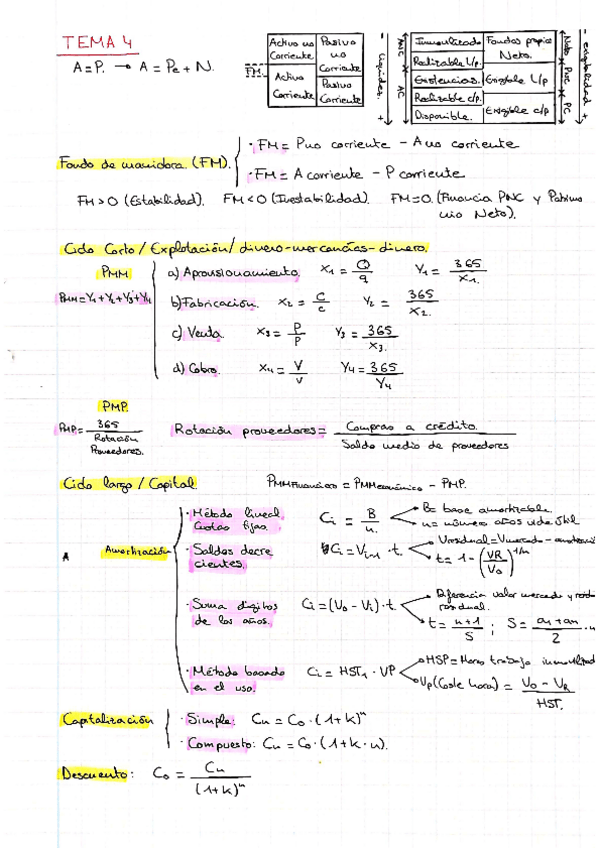 TEMA 4
A=P. → A = Pe + N.
Activo no Corriente
Pasivo no Corriente
FM.
Activo Corriente
Pasivo Corriente
- Liquidez. +
ANC
AC
Inmovilizado
Realizable L/p.
Existencias.
Realizable c/p.
Disponible.
Fondos propios Neto.
Exigible L/p
Exigible c/p
Neto
PNC
PC
- exigibilidad +
Fondo de maniobra. (FM).
· FM = P no corriente - A no corriente
· FM = A corriente - P corriente
FM > 0 (Estabilidad). FM < 0 (Inestabilidad). FM = 0. (Financia PNC y Patrimo
nio Neto).
Ciclo Corto / Explotación / dinero-mercancías-dinero.
PMM
PMM = Y1 + Y2 + Y3 + Y4
a) Aprovisionamiento. X1 = Q/q Y1 = 365/X1.
b) Fabricación. X2 = C/c Y2 = 365/X2.
c) Venta. X3 = P/p Y3 = 365/X3.
d) Cobro. X4 = V/v Y4 = 365/Y4
PMP.
PMP = 365/Rotación Proveedores.
Rotación proveedores = Compras a crédito./Saldo medio de proveedores
Ciclo largo / Capital. PMM Financiero = PMM económico - PMP.
A
Amortización
· Método lineal Cuotas fijas. Ci = B/n.
B= base amortizable.
n = número años vida útil
· Saldos decre cientes. Ci = Vi-1 · t.
t = 1 - (VR/Vo)^1/n
· Suma dígitos de los años. Ci = (Vo - Vi) · t.
Diferencia valor mercado y
residual.
t = n+1/S ; S = a1+an/2 · n
· Método basado en el uso. Ci = HST1 · VP
HSP = Horas trabajo inmovilizad
Vp (Coste hora) = Vo - VR/HST.
Capitalización
· Simple: Cn = Co · (1+k)^n
· Compuesto: Cn = Co · (1+k·n).
Descuento: Co = Cn/(1+k)^n